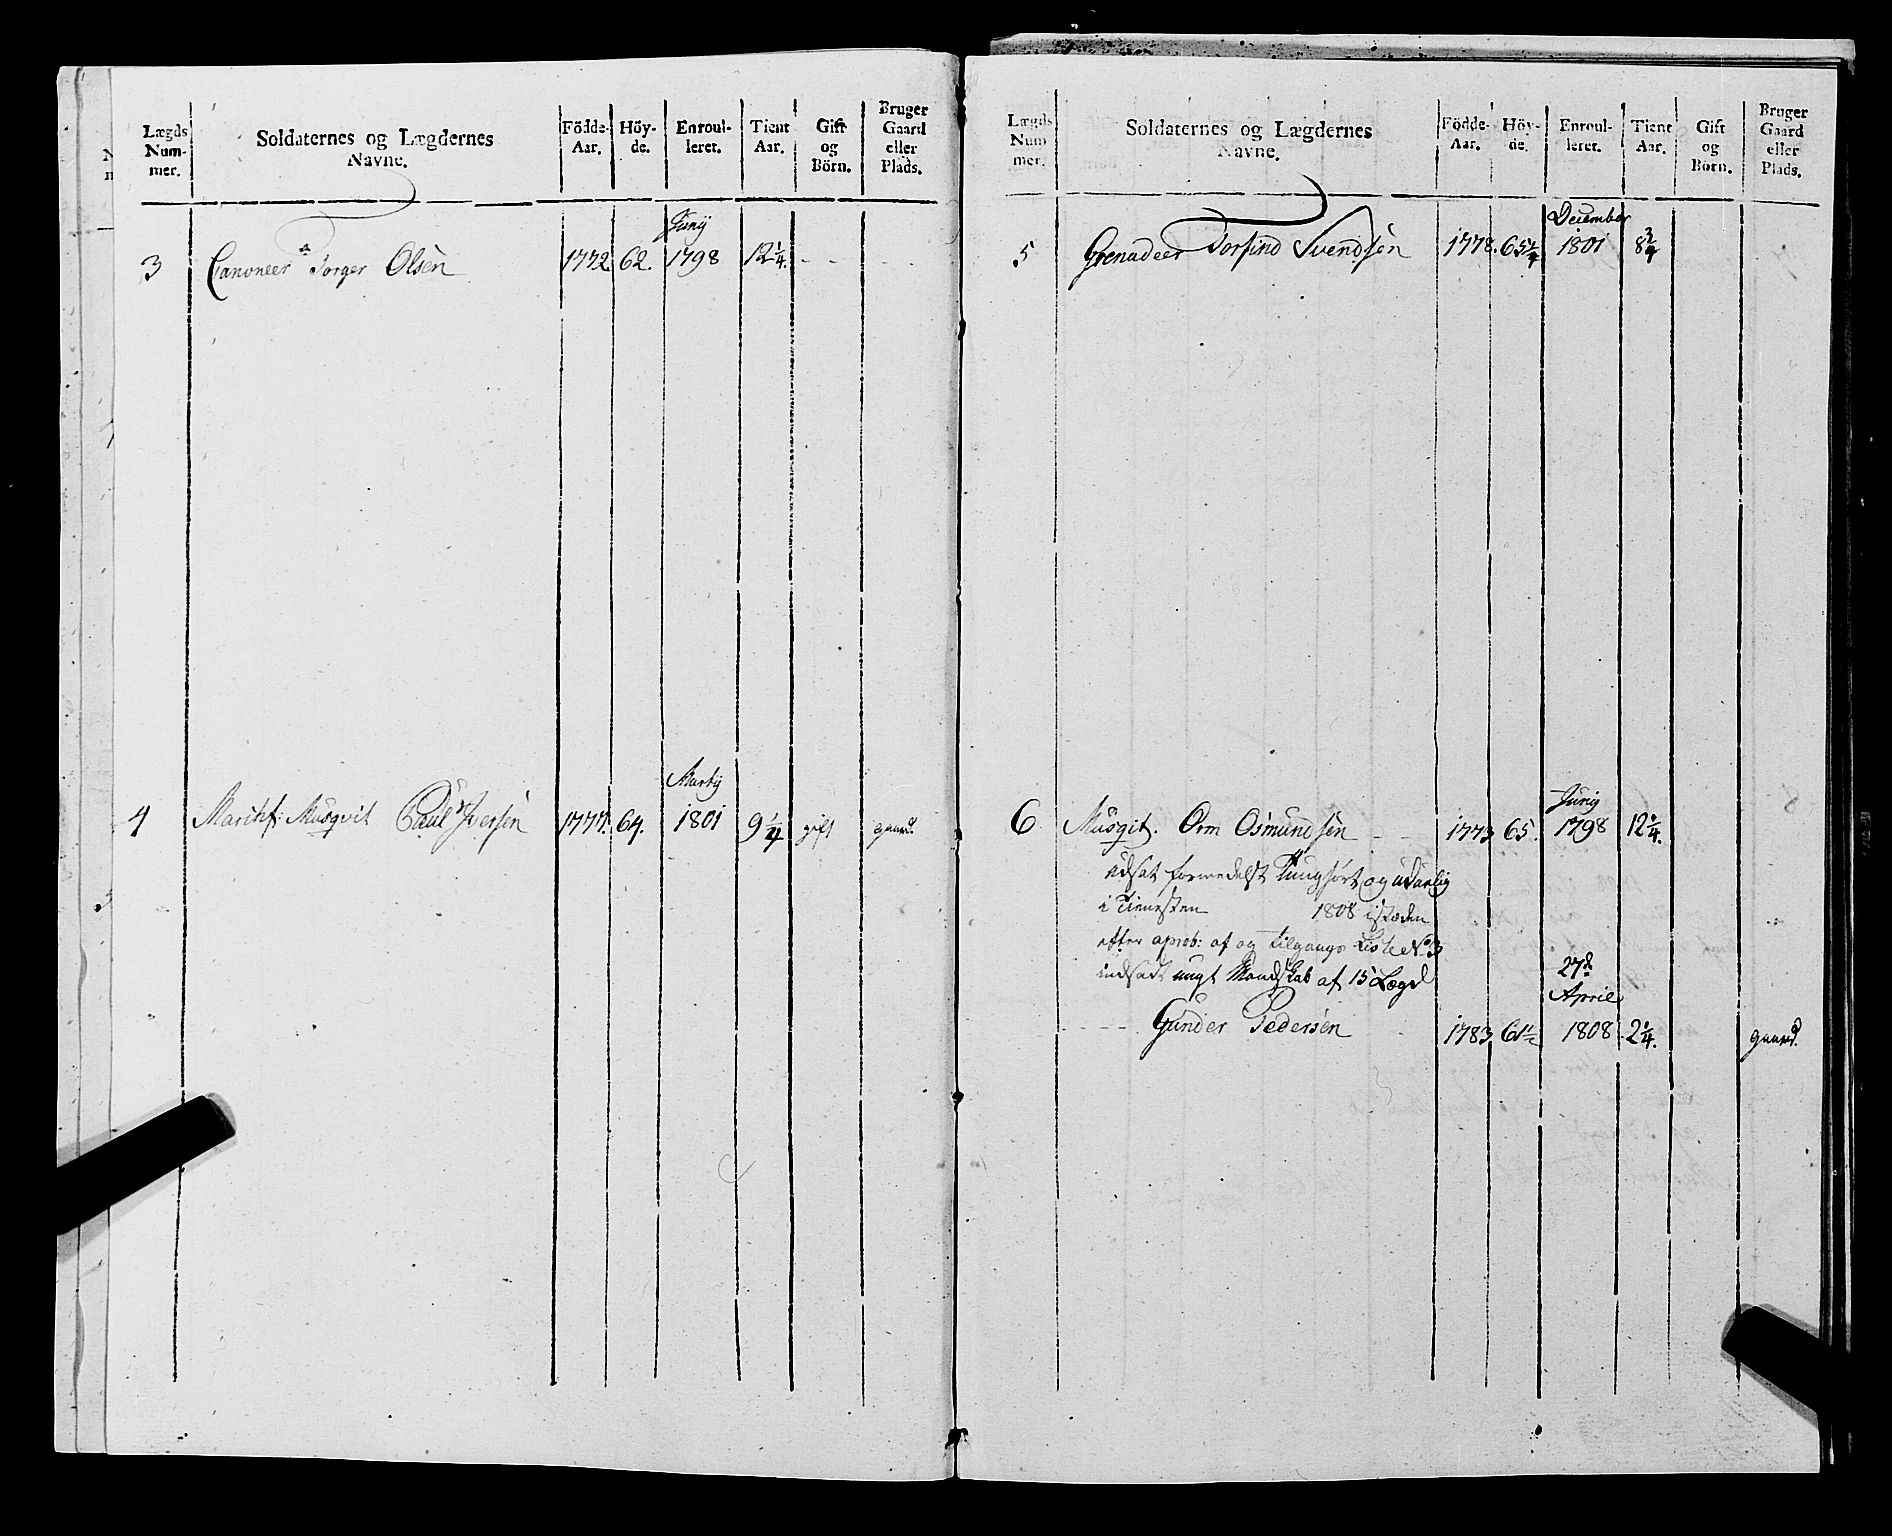 Lægds Num- mer. Soldaternes og Lægdernes Navne. Födde- Aar. Höy- de. Enroul- leret. Tient Aar. Gift og Börn. Bruger Gaard eller Plads.
Junÿ
3 Canoneer Torger Olsen 1772 62. 1798 12 1/4. - - -
Martÿ
4 Musqvit Paul Iversen 1777. 64. 1801 9 1/4 gift gaard.
Lægds Num mer. Soldaternes og Lægdernes Navne. Födde- Aar. Höy- de. Enroul- leret. Tient Aar. Gift og Börn. Bruger Gaard eller Plads.
December
5 Grenadeer Torfind Svendsen 1778. 65 1/4 1801 8 3/4
Junÿ
6 Musqit. Orm Osmundsen - - 1773 65. 1798 12 1/4.
udsat formedelst Tunghört og udüelig
i Tienesten 1808 istæden
efter aprob: af og tilgangs Liste No 3
indsadt ungt Mandskab af 15 Lægd
27de
April
Gunder Pedersen 1783 61 1/2 1808 2 1/4. gaard.